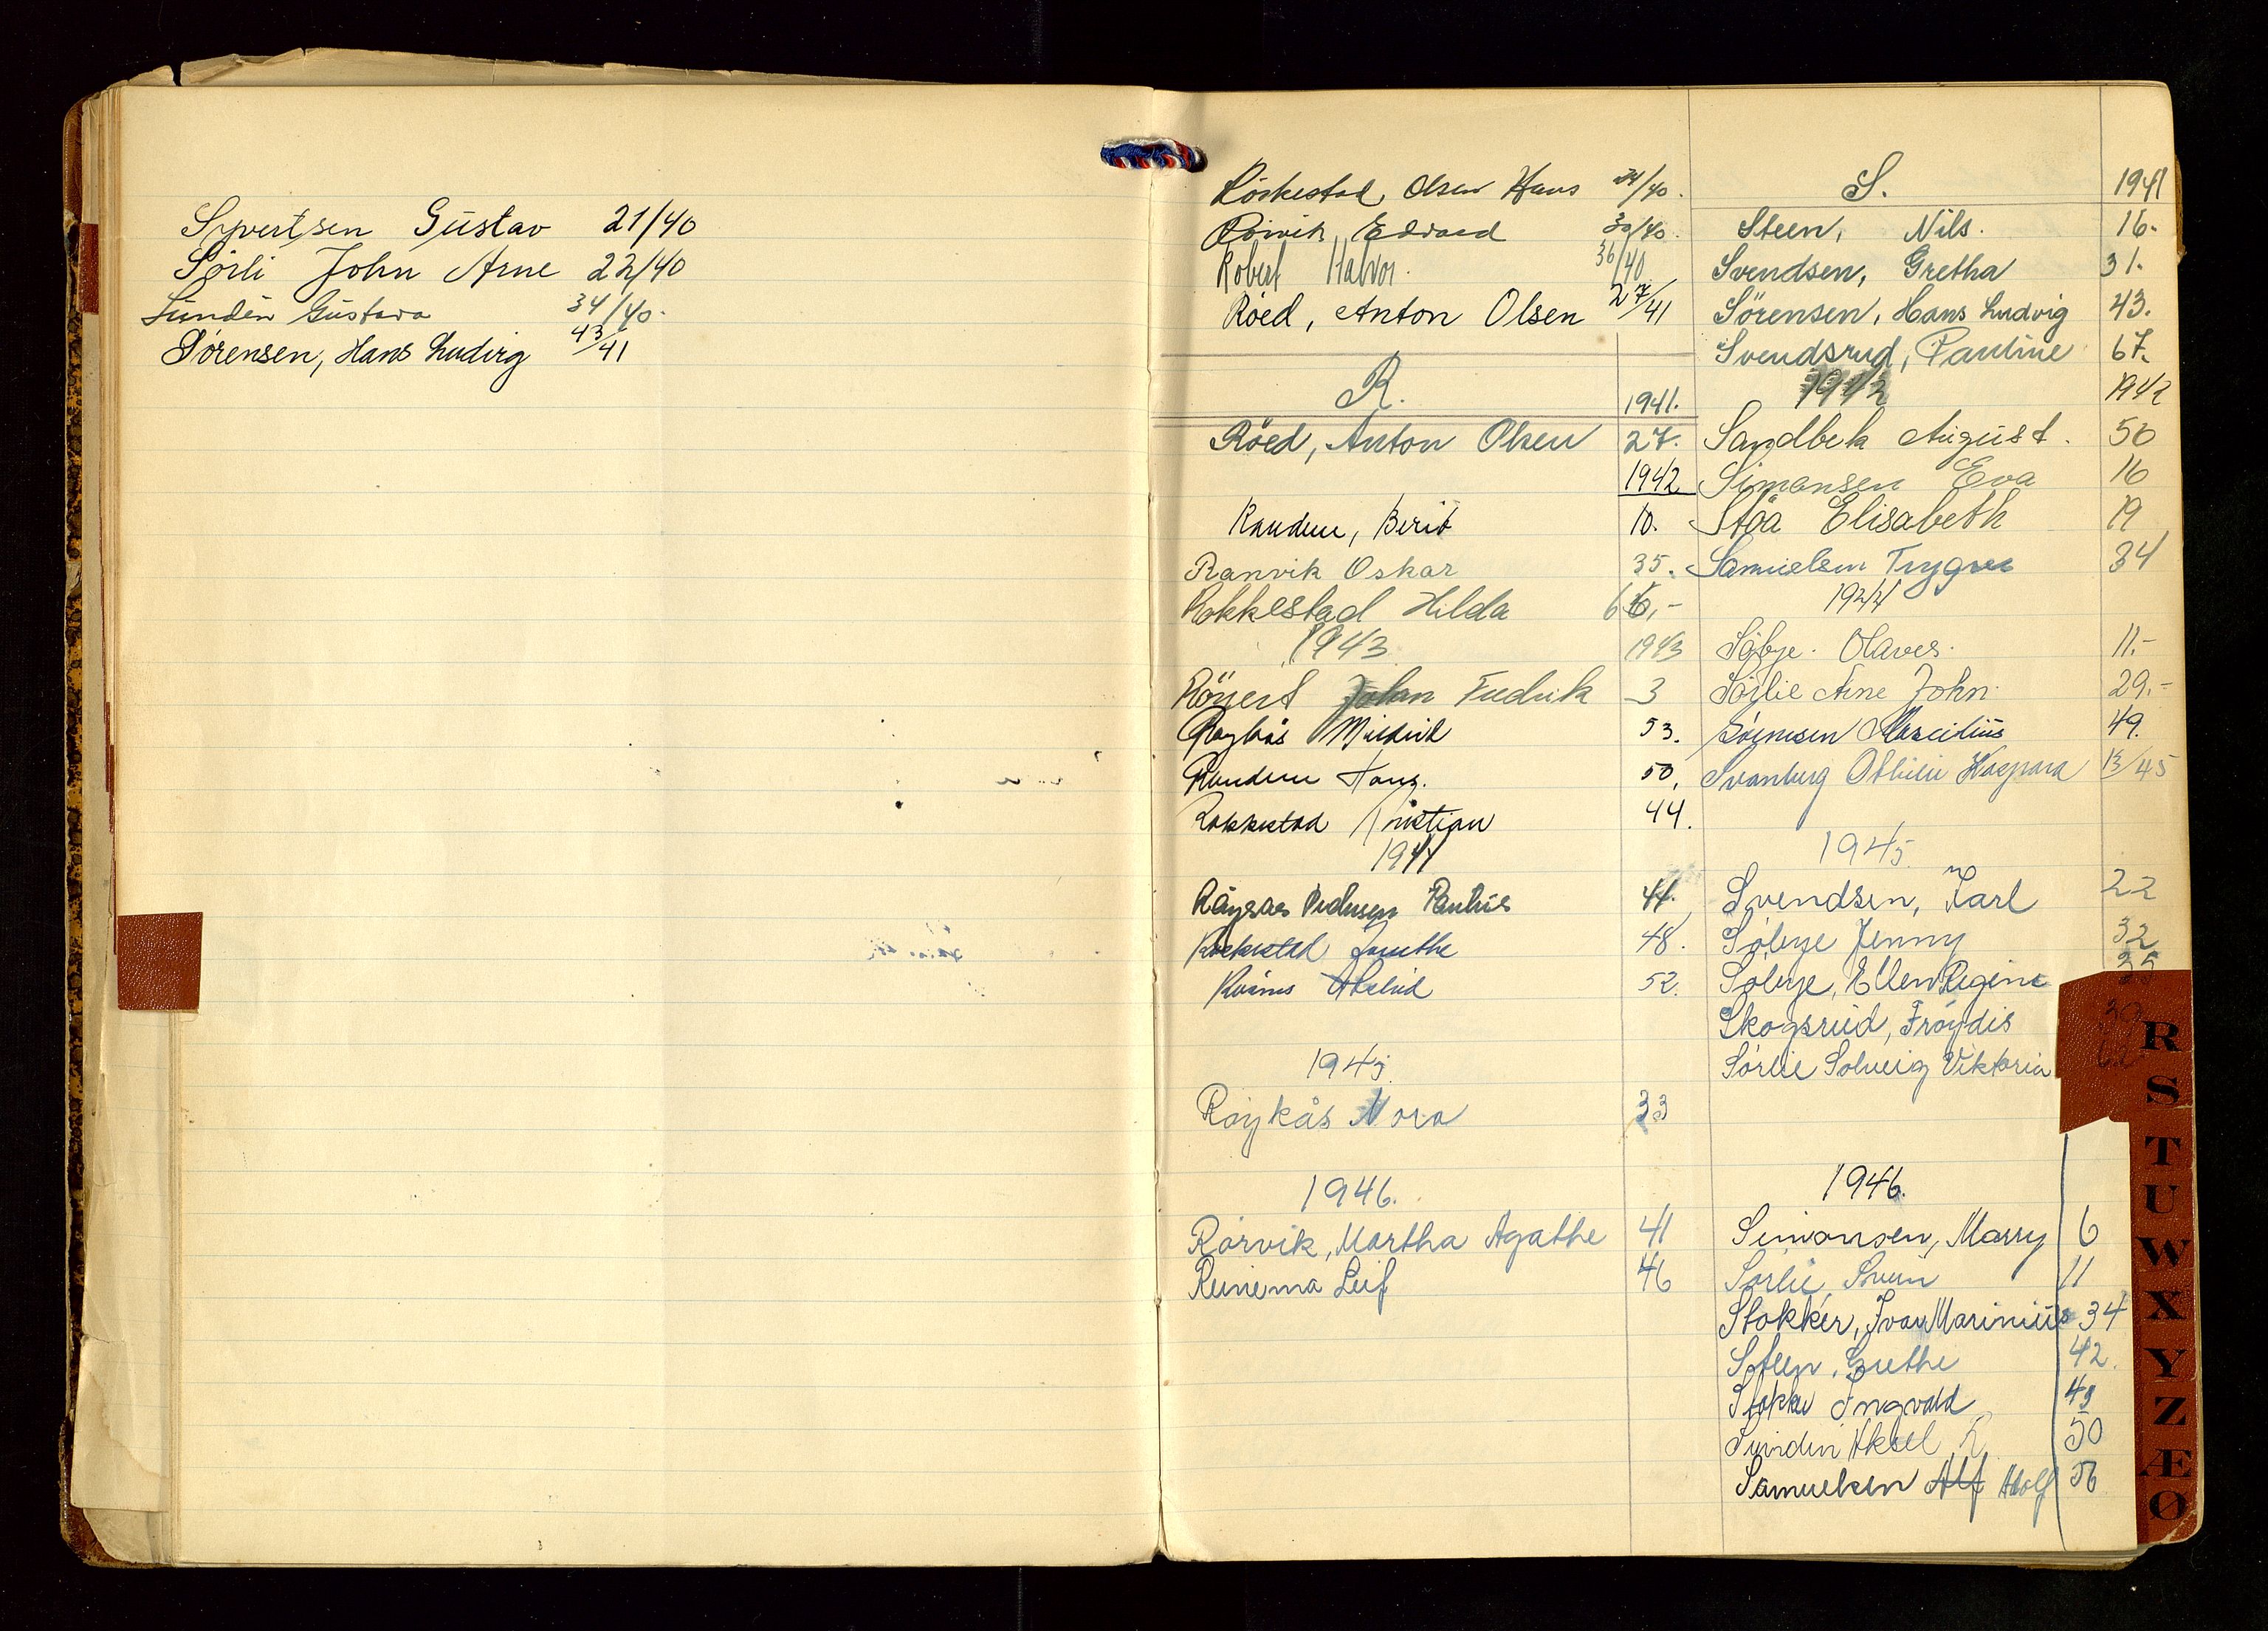 Syvertsen Gustav 21/40
Sørli John Arne 22/40
Sundén Gustava 34/40.
Sørensen, Hans Ludvig 43/41
Olsen Hans 24/40.
Rörvik Edvard 30/40.
Robert Halvor. 36/40
Röed, Anton Olsen 27/41
R. 1941.
Röed, Anton Olsen 27.
1942
Randem, Berit 10.
Ranvik Oskar 35.
Rokkestad Hilda 66,-
1943 1943
Johan Fredrik 3
Røykås 53.
Randem Hans. 50,
Rokkestad Kristian 44.
1944
Pedersen Paulus 44.
Rokkestad 48.
52.
1945.
Røykås Nora 33
1946.
Rørvik, Martha Agathe 41
Reinemo Leif 46
S. 1941
Steen, Nils. 16.
Svendsen, Gretha 31.
Sörensen, Hans Ludvig 43.
Svendsrud, Pauline 67.
1942 1942
Sandbek August. 50
Simonsen Eva 16
Støa Elisabeth 19
Samuelsen Trygve 34
1944
Søbye. Olaves. 11.-
Sørlie Arne John. 29.-
Sørensen 49.
Svanberg Othilie Kaspara 13/45
1945.
Svendsen, Karl 22
Søbye Jenny 32
Søbye, Ellen Regine 35
Skogsrud, Frøydis 39
Sørlie Solveig Viktoria 62
1946.
Simonsen, Marry 6
Sørlie, Svein 11
Stokker, Ivar Marinius 34
Grethe 42.
Stokke Ingvald 49
Sundin Aksel R. 50
Samuelsen Alf Adolf 56
R
S
T
U
W
X
Y
Z
Æ
Ø